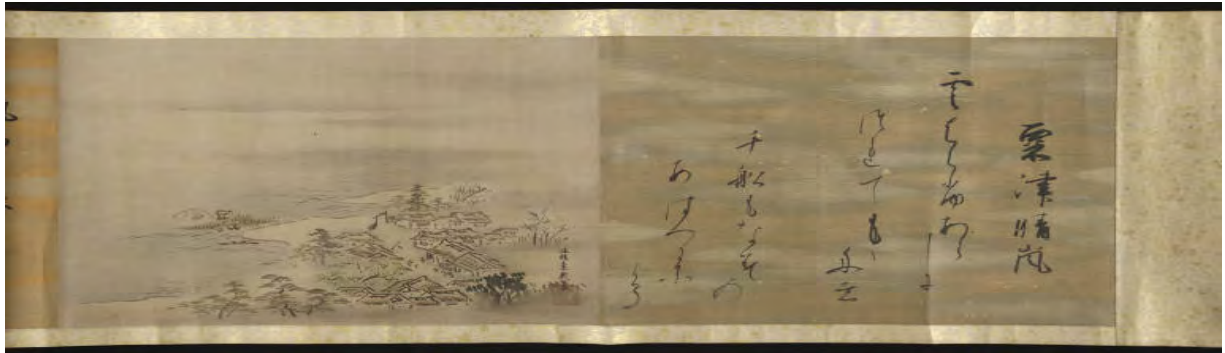 粟津晴嵐
雲はらふあらしに
つれてもゝ舟も
千船もなみの
あはつにそ
よる